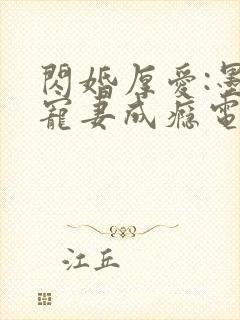 閃婚厚愛:墨
寵妻成癮電
江丘